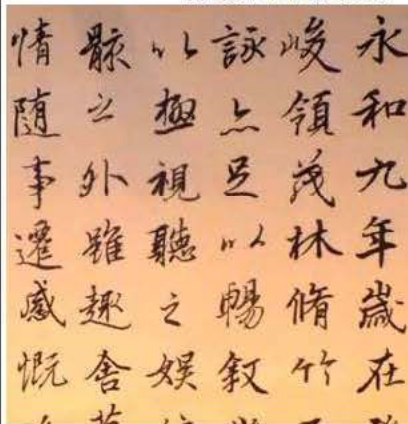 永和九年歲在
峻領茂林脩竹
詠亦足以暢叙
以極視聽之娛
骸之外雖趣舍
情隨事遷感慨